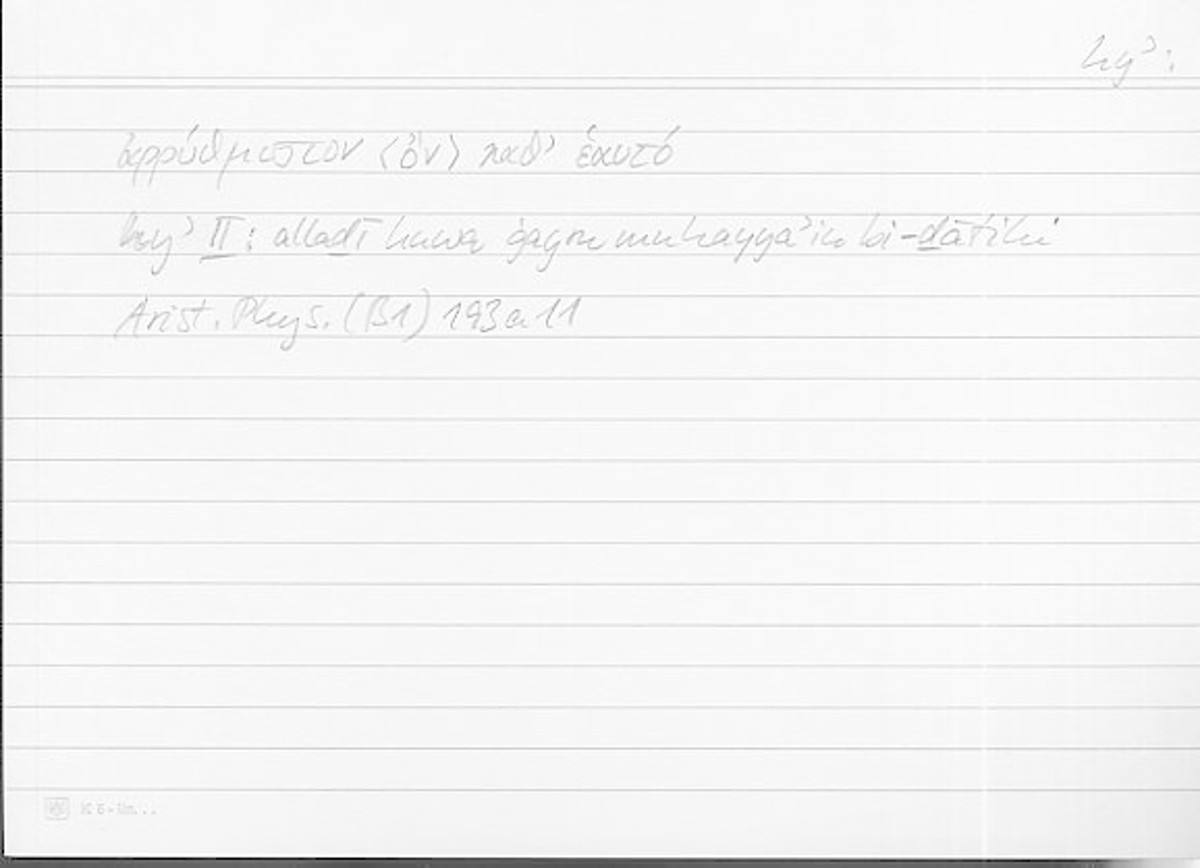 hyʾ:
ἀρρύθμιστον ⟨ὂν⟩ καθ’ ἑαυτό
hyʾ II: allaḏī huwa ġayru muhayyaʾin bi-ḏātihi
Arist. Phys. (B1) 193a11